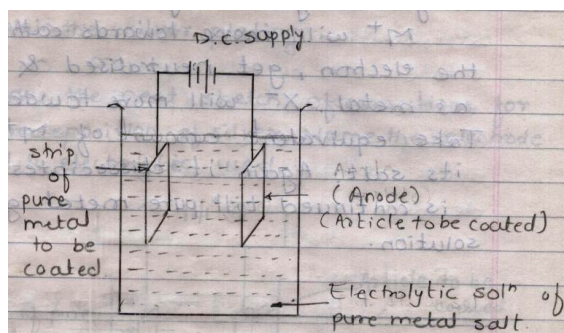 D.C. supply
strip
of
pure
metal
to be
coated
(Anode)
(Article to be coated)
Electrolytic solⁿ of
pure metal salt.